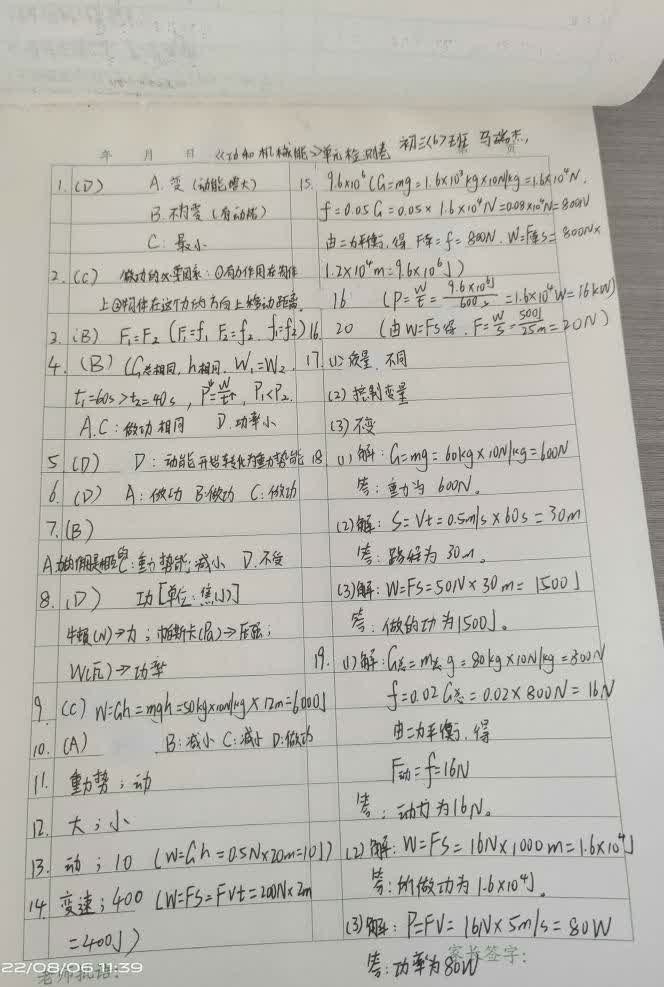 年 月 日 《功和机械能》单元检测卷 初三(6)班
1. (D) A. 变(动能增大)
B. 不变(有动能)
C. 最小
2. (C) 做功的必要因素:①有力作用在物体
上②物体在这个力的方向上移动距离.
3. (B) F₁=F₂ (F₁=f₁ F₂=f₂ f₁=f₂)
4. (B) (G总相同, h相同, W₁=W₂
t₁=60s>t₂=40s, P=W/t, P₁<P₂.
A.C:做功相同 D.功率小
5. (D) D:动能开始转化为重力势能
6. (D) A:做功 B:做功 C:做功
7. (B)
C:重力势能减小 D.不受
8. (D) 功[单位:焦(J)]
牛顿(N)→力;帕斯卡(Pa)→压强;
W(瓦)→功率
9. (C) W=Gh=mgh=50kg×10N/kg×12m=6000J
10. (A) B:减小 C:减小 D:做功
11. 重力势;动
12. 大;小
13. 动;10 (W=Gh=0.5N×20m=10J)
14. 变速;400 (W=FS=FVt=200N×2m
=400J)
15. 9.6×10⁶ (G=mg=1.6×10³kg×10N/kg=1.6×10⁴N.
f=0.05G=0.05×1.6×10⁴N=0.08×10⁴N=800N
由二力平衡,得 F牵=f=800N. W=F牵S=800N×
1.2×10⁴m=9.6×10⁶J)
16 (P=W/t=9.6×10⁶J/600s=1.6×10⁴W=16kW)
16. 20 (由W=FS得, F=W/S=500J/25m=20N)
17. (1) 质量 不同
(2) 控制变量
(3) 不变
18. (1)解:G=mg=60kg×10N/kg=600N
答:重力为600N。
(2)解:S=Vt=0.5m/s×60s=30m
答:路程为30m。
(3)解:W=FS=50N×30m=1500J
答:做的功为1500J。
19. (1)解:G总=m总g=80kg×10N/kg=800N
f=0.02G总=0.02×800N=16N
由二力平衡,得
F动=f=16N
答:动力为16N。
(2)解:W=FS=16N×1000m=1.6×10⁴J
答:所做功为1.6×10⁴J。
(3)解:P=FV=16N×5m/s=80W
答:功率为80W
家长签字:
老师批语:
22/08/06 11:39